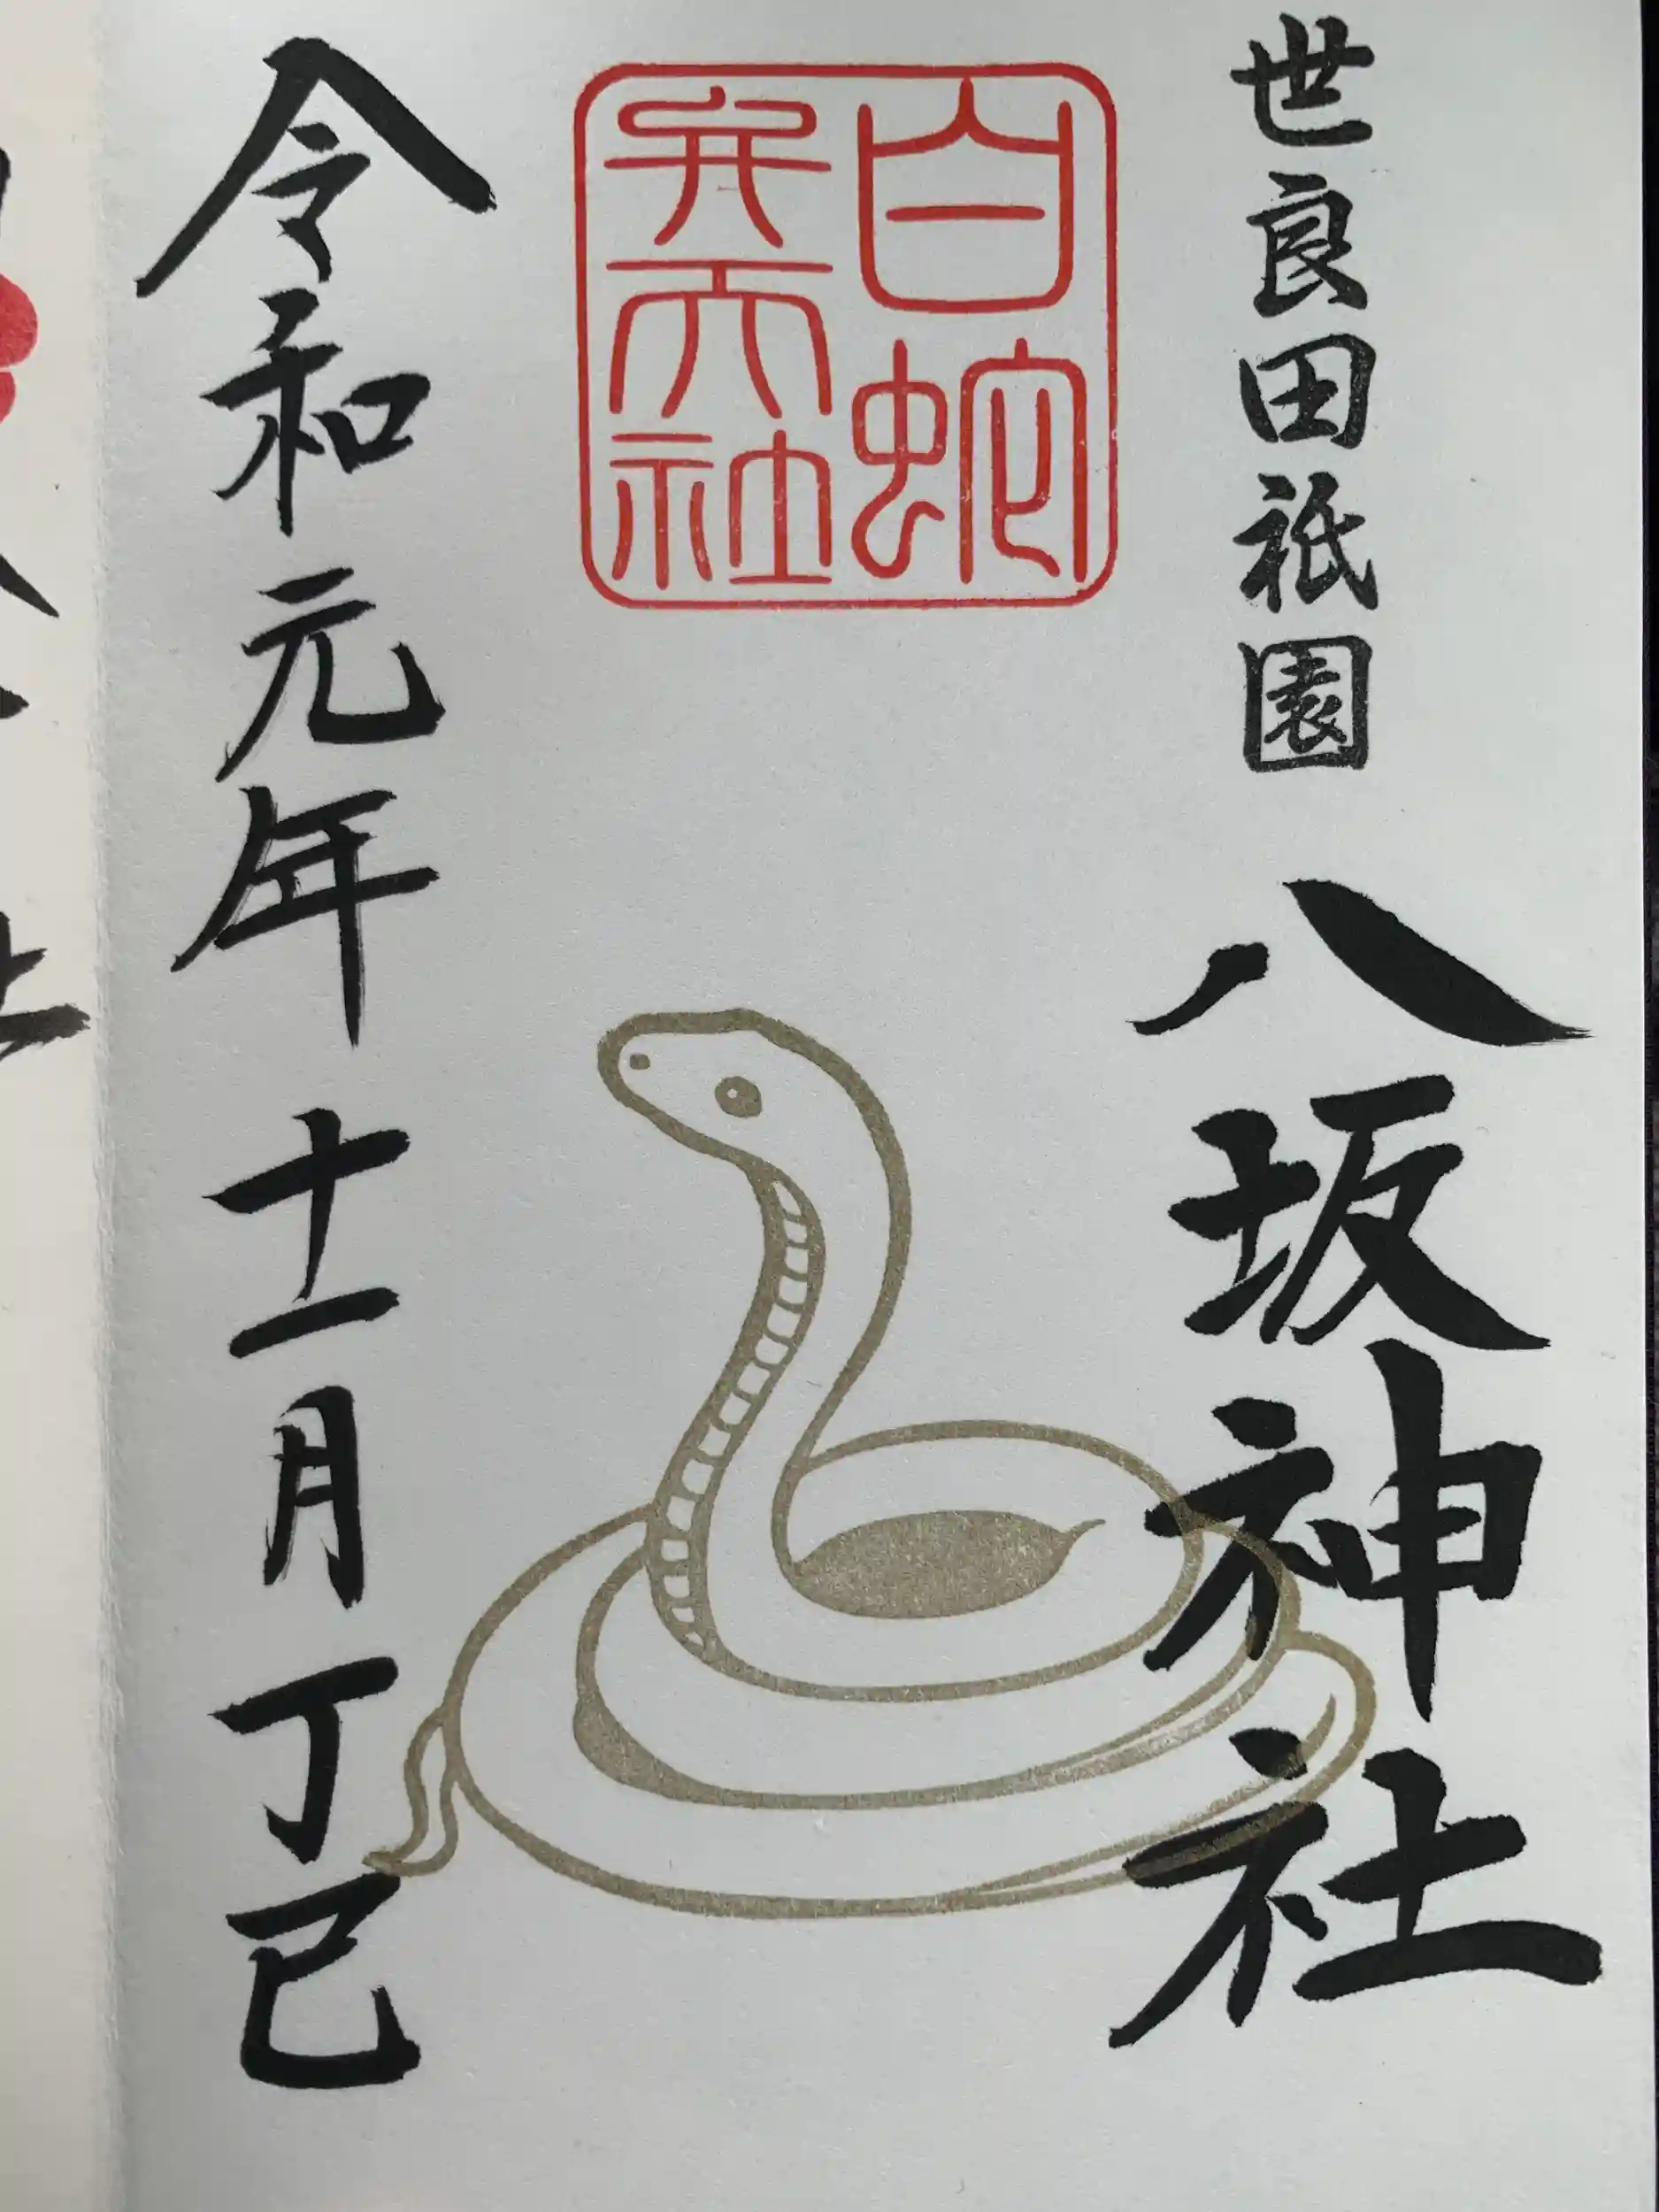 世良田祇園
八坂神社
白蛇
弁天社
令和元年十一月丁巳